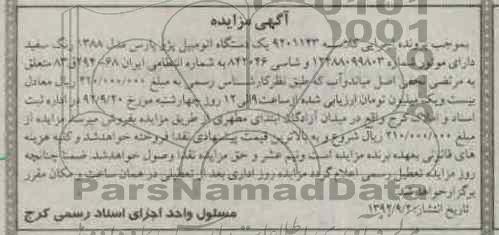 آگهی مزایده
بموجب پرونده اجرایی کلاسه ۹۲۰۱۱۲۳ یک دستگاه اتومبیل پژو پارس مدل ۱۳۸۸ رنگ سفید
دارای موتور شماره ۱۲۴۸۸۰۹۹۸۰۳ و شاسی ۸۴۲۰۴۶ به شماره انتظامی ایران ۶۸ـ ۸۳ متعلق
به مرتضی اصل میاندوآب که طبق نظر کارشناس رسمی به مبلغ ۲۱۰/۰۰۰/۰۰۰ ریال معادل
بیست و یک میلیون تومان ارزیابی شده از ساعت ۹ الی ۱۲ روز چهارشنبه مورخ ۹۲/۹/۲۰ در اداره ثبت
اسناد و املاک کرج واقع در میدان آزادگان ابتدای مطهری از طریق مزایده بفروش میرسد مزایده از
مبلغ ۲۱۰/۰۰۰/۰۰۰ ریال شروع و به بالاترین قیمت پیشنهادی نقدا فروخته خواهد شد و کلیه هزینه
های قانونی بعهده برنده مزایده است ونیم عشر و حق مزایده نقدا وصول خواهد شد. ضمنا چنانچه
روز مزایده تعطیل رسمی اعلام گردد مزایده روز اداری بعد از تعطیلی در همان ساعت و مکان مقرر
برگزار خواهد شد.
تاریخ انتشار: ۱۳۹۲/۹/۲
مسئول واحد اجرای اسناد رسمی کرج
ParsNamadData